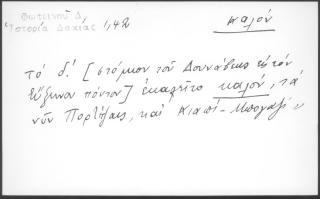 Φωτεινοῦ Δ.
Ἱστορία Δακίας 1,42
καλόν
τό δ! [στόμιον τοῦ Δουνάβεως εἰς τόν
Εὔξεινον πόντον] ἐκαλεῖτο καλόν, τά
νῦν Πορτίτζαις, καί Κιαπί-Μπογαζί